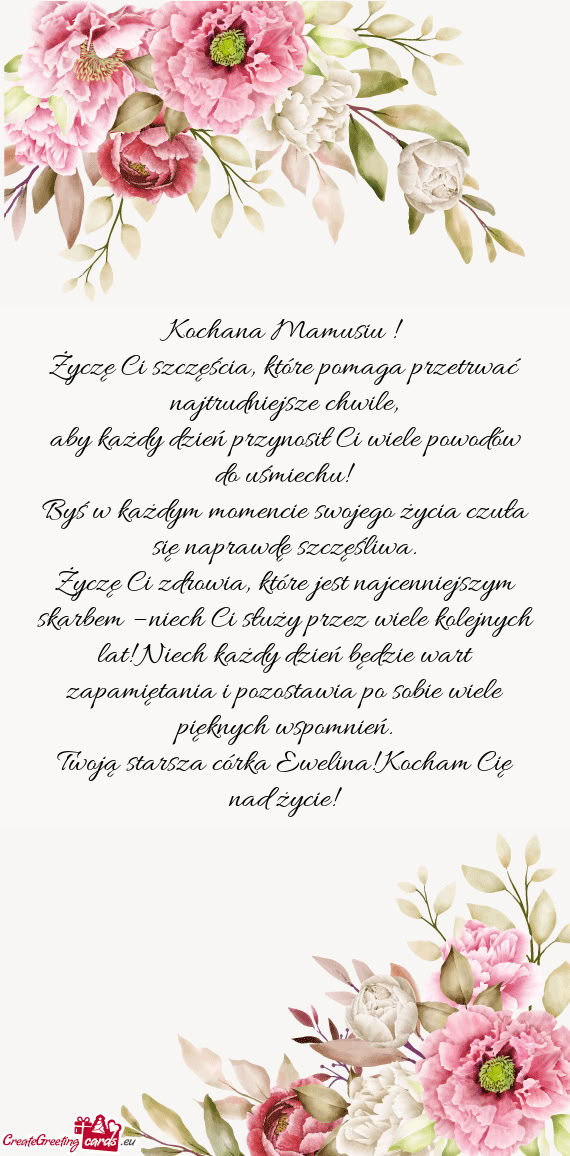 Kochana Mamusiu !
Życzę Ci szczęścia, które pomaga przetrwać
najtrudniejsze chwile,
aby każdy dzień przynosił Ci wiele powodów
do uśmiechu!
Byś w każdym momencie swojego życia czuła
się naprawdę szczęśliwa.
Życzę Ci zdrowia, które jest najcenniejszym
skarbem –niech Ci służy przez wiele kolejnych
lat!Niech każdy dzień będzie wart
zapamiętania i pozostawia po sobie wiele
pięknych wspomnień.
Twoją starsza córka Ewelina!Kocham Cię
nad życie!
CreateGreeting cards .eu